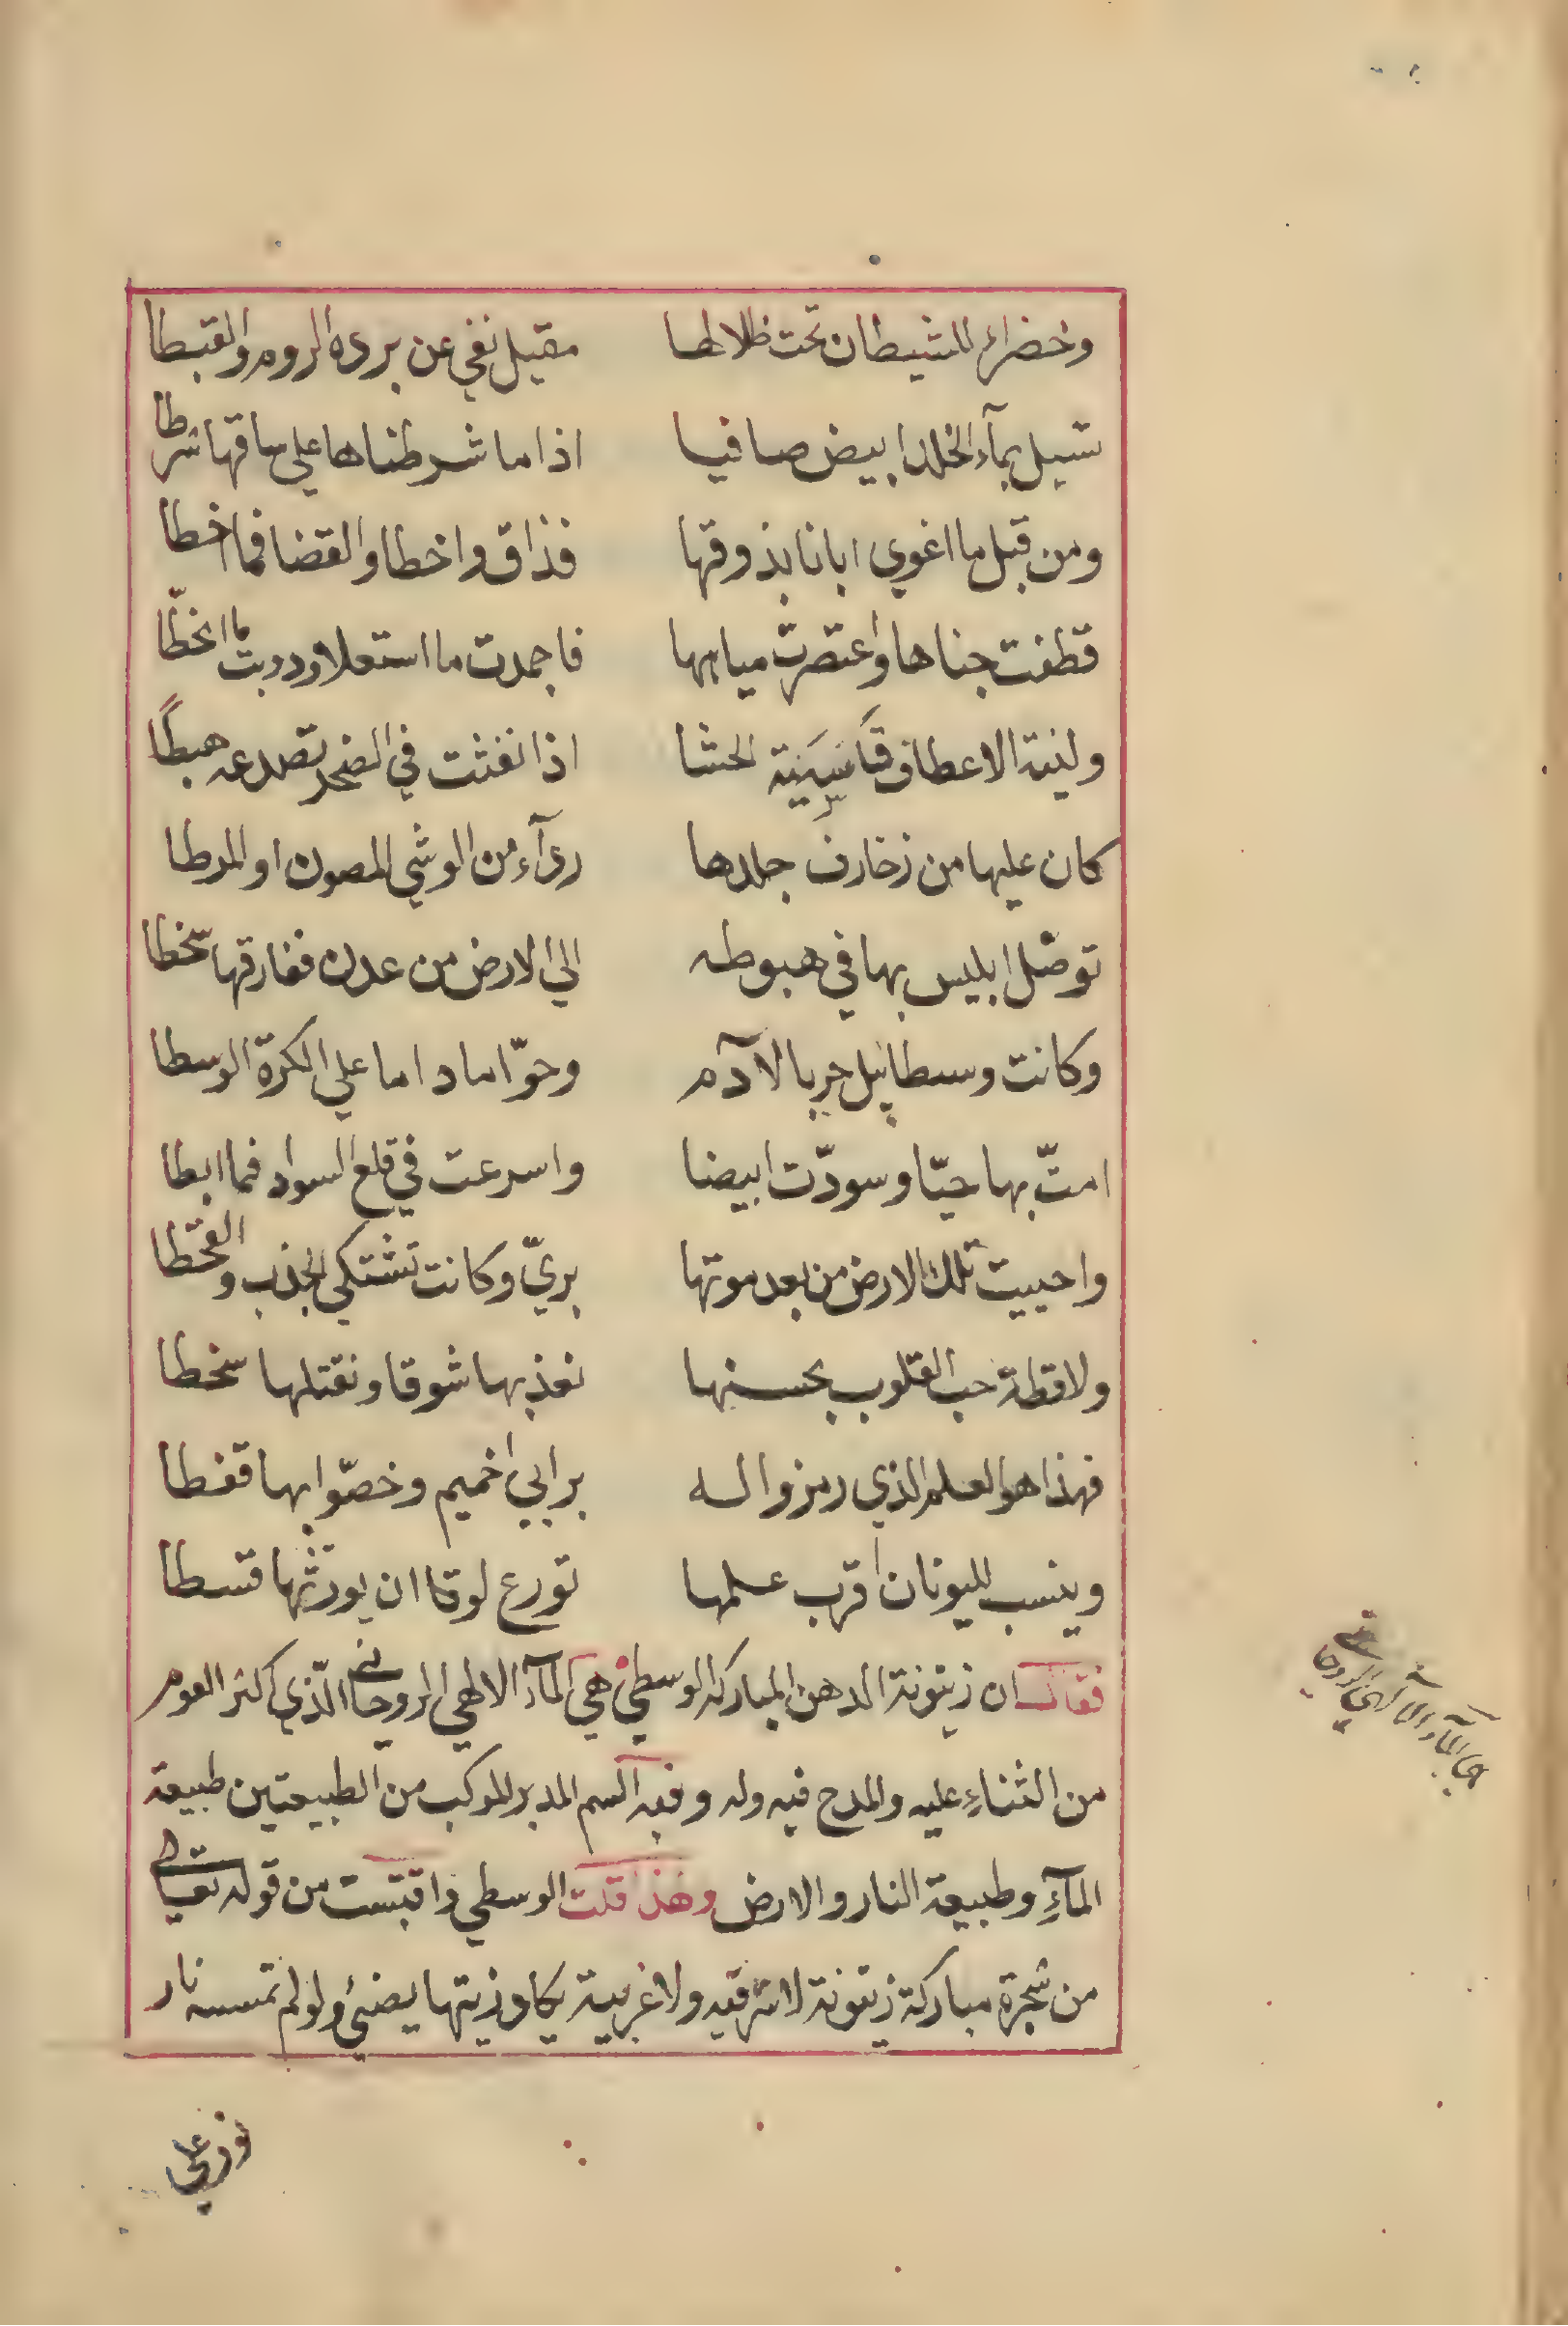 وخضراء للشيطان تحت ظلالها مقيل نفي عن برده الروم والقبطا
تسيل بمآء الخلد ابيض صافيا اذا ما شرطناها علي ساقها شرطا
ومن قبل ما اغوي ابانا بذوقها فذاق واخطا والقضا فما اخطا
قطفت جناها واعتصرت مياهها فاجمدت ما استعلا وذوبت ما انحطّا
ولينة الاعطاف قاسية الحشا اذا نفثت في الصخر تصدعه هبطًا
كان عليها من زخارف جلدها ردآء من الوشي المصون او المرطا
توصّل ابليس بها في هبوطه الي الارض من عدن ففارقها سخطا
وكانت وسطا نيل جربا لآدم وحوّا ما داما علي الكرة الوسطا
امتّ بها حيّا وسودّت ابيضا واسرعت في قلع السواد فما ابطا
واحييت تلك الارض من بعد موتها بريّ وكانت تشتكي الجذب والقحطا
ولاقطة حب القلوب بحسنها نعذبها شوقا ونقتلها سخطا
فهذا هو العلم الذي رمزوا له برابي اخميم وخصّوا بها قفطا
وينسب لليونان اقرب علمها تورع لوقا ان يورثها قسطا
فقال ان زيتونة الدهن المباركة الوسطي هي المآء الالهي الروحاني الّذي اكثر القوم
من الثناءِ عليه والمدح فيه وله وفيه السم المدبر المركب من الطبيعتين طبيعة
المآءِ وطبيعة النار والارض وهذا قلت الوسطي واقتبست من قوله تعالي
من شجرة مباركة زيتونة لا شرقيه ولا غربية يكاد زيتها يضئ ولو لم تمسسه نار
هي المآء الآلهي الروحاني
نور علي